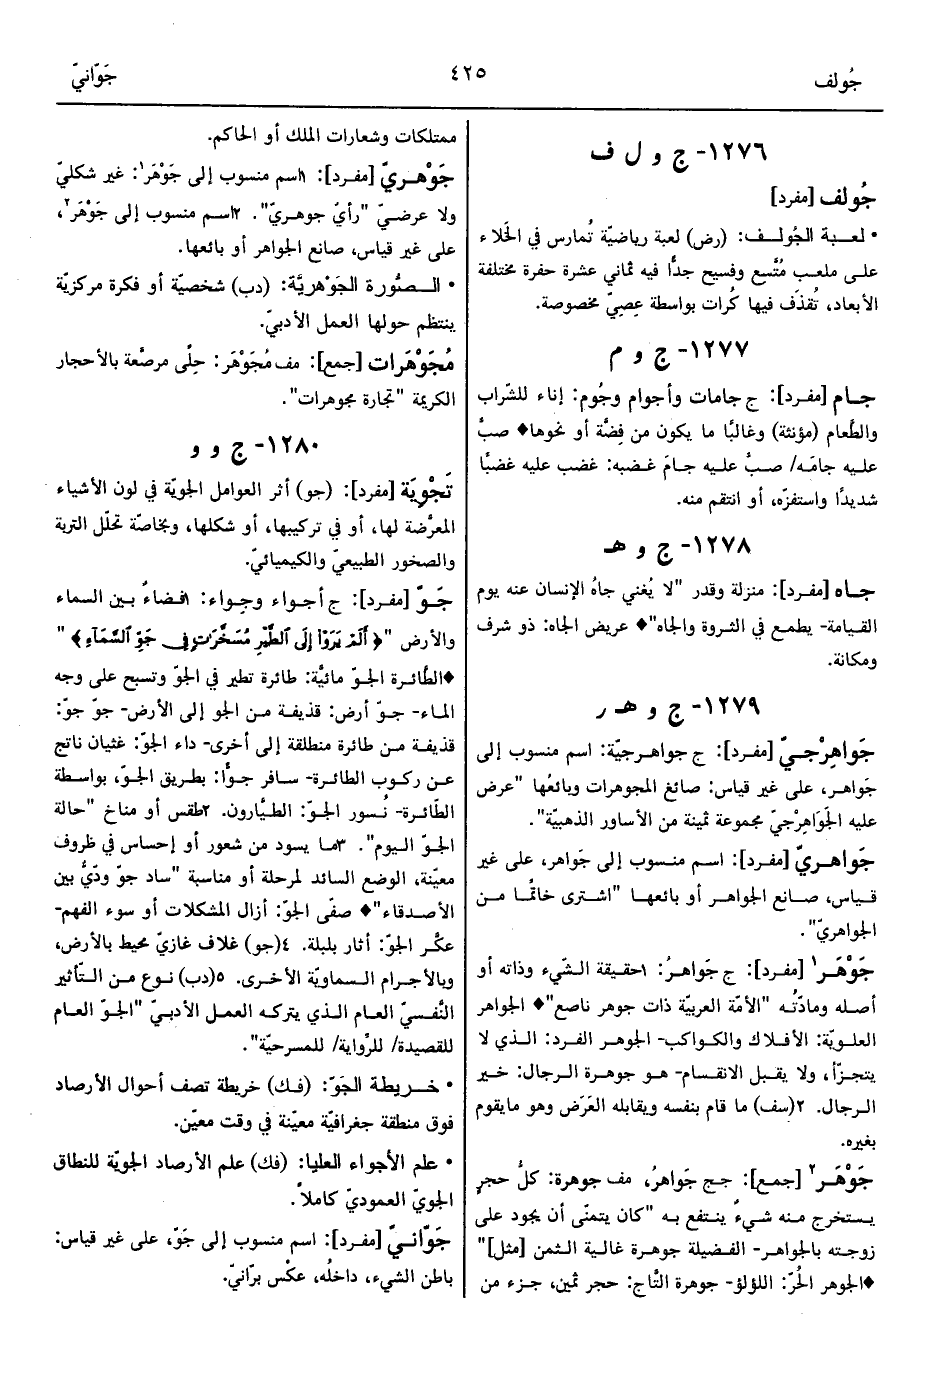 جُولف
٤٢٥
جَوّانيّ
١٢٧٦- ج و ل ف
جُولف [مفرد]
• لعبة الجُولف: (رض) لعبة رياضيّة تُمارس في الخلاء
على ملعب مُتَّسع وفسيح جدًّا فيه ثماني عشرة حفرة مختلفة
الأبعاد، تُقذَف فيها كُرات بواسطة عِصِيّ مخصوصة.
١٢٧٧- ج و م
جـام [مفرد]: ج جامات وأجوام وجُوم: إناء للشّراب
والطَّعام (مؤنثة) وغالبًا ما يكون من فِضَّة أو نحوها♦ صبَّ
عليه جامَه/ صبَّ عليه جامَ غضبه: غضب عليه غضبًا
شديدًا واستفزّه، أو انتقم منه.
١٢٧٨- ج و هـ
جـاه [مفرد]: منزلة وقدر "لا يُغني جاهُ الإنسان عنه يوم
القيامة- يطمع في الثروة والجاه"♦ عريض الجاه: ذو شرف
ومكانة.
١٢٧٩- ج و هـ ر
جَواهِرْجيّ [مفرد]: ج جواهرجيّة: اسم منسوب إلى
جَواهر، على غير قياس: صائغ المجوهرات وبائعُها "عرض
عليه الجَوَاهِرْجيّ مجموعة ثمينة من الأساور الذهبيّة".
جَواهريّ [مفرد]: اسم منسوب إلى جَواهر، على غير
قياس، صانع الجواهر أو بائعها "اشترى خاتمًا من
الجواهريّ".
جَوْهَر١ [مفرد]: ج جَواهرُ: ١حقيقة الشّيء وذاته أو
أصله ومادّتُه "الأمّة العربيّة ذات جوهر ناصع"♦ الجواهر
العلويّة: الأفلاك والكواكب- الجوهر الفرد: الذي لا
يتجزّأ، ولا يقبل الانقسام- هو جوهرة الرجال: خير
الرجال. ٢(سف) ما قام بنفسه ويقابله العَرَض وهو مايقوم
بغيره.
جَوْهَر٢ [جمع]: جج جَواهرُ، مف جوهرة: كلُّ حجرٍ
يستخرج منه شيءٌ ينتفع به "كان يتمنّى أن يجود على
زوجته بالجواهر- الفضيلة جوهرة غالية الثمن [مثل]"
♦الجوهر الحُرّ: اللؤلؤ- جوهرة التَّاج: حجر ثمين، جزء من
ممتلكات وشعارات الملك أو الحاكم.
جَوْهريّ [مفرد]: ١اسم منسوب إلى جَوْهَر١: غير شكليّ
ولا عرضيّ "رأيّ جوهريّ". ٢اسم منسوب إلى جَوْهَر٢،
على غير قياس، صانع الجواهر أو بائعها.
• الصُّورة الجَوْهريَّة: (دب) شخصيّة أو فكرة مركزيّة
ينتظم حولها العمل الأدبيّ.
مُجَوْهَرات [جمع]: مف مُجَوْهَر: حِلًى مرصَّعة بالأحجار
الكريمة "تجارة مجوهرات".
١٢٨٠- ج و و
تَجْوِيَّة [مفرد]: (جو) أثر العوامل الجويّة في لون الأشياء
المعرَّضة لها، أو في تركيبها، أو شكلها، وبخاصّة تحلّل التربة
والصخور الطبيعيّ والكيميائيّ.
جَـوّ [مفرد]: ج أجواء وجِواء: ١فضاءٌ بين السماء
والأرض "﴿أَلَمْ يَرَوْا إِلَى الطَّيْرِ مُسَخَّرَاتٍ فِي جَوِّ السَّمَاءِ﴾"
♦الطّائرة الجوّ مائيّة: طائرة تطير في الجوّ وتسبح على وجه
الماء- جوّ أرض: قذيفة من الجو إلى الأرض- جوّ جوّ:
قذيفة من طائرة منطلقة إلى أخرى- داء الجوّ: غثيان ناتج
عن ركوب الطائرة- سافر جوًّا: بطريق الجوّ، بواسطة
الطّائرة- نُسور الجوّ: الطيّارون. ٢طقس أو مناخ "حالة
الجوّ اليوم". ٣ما يسود من شعور أو إحساس في ظروف
معيّنة، الوضع السائد لمرحلة أو مناسبة "ساد جوّ ودّيّ بين
الأصدقاء"♦ صفّى الجوّ: أزال المشكلات أو سوء الفهم-
عكَّر الجوّ: أثار بلبلة. ٤(جو) غلاف غازيّ محيط بالأرض،
وبالأجرام السماويّة الأخرى. ٥(دب) نوع من التّأثير
النَّفسيّ العام الذي يتركه العمل الأدبيّ "الجوّ العام
للقصيدة/ للرِّواية/ للمسرحيّة".
• خريطة الجَوّ: (فك) خريطة تصف أحوال الأرصاد
فوق منطقة جغرافيّة معيّنة في وقت معيّن.
• علم الأجواء العليا: (فك) علم الأرصاد الجويّة للنطاق
الجويّ العموديّ كاملاً.
جَوّانيّ [مفرد]: اسم منسوب إلى جَوّ، على غير قياس:
باطن الشيء، داخلُه، عكْس برّانيّ.